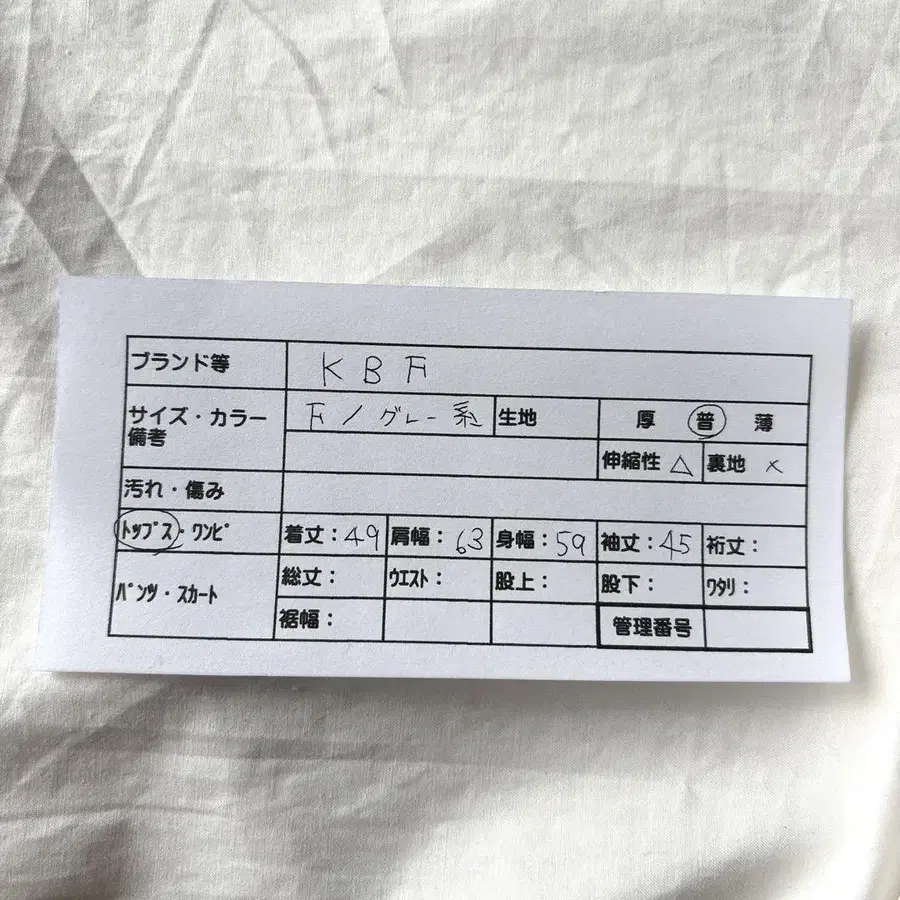 ブランド等 KBF
サイズ・カラー F/グレー系 生地 厚 普 薄
備考 伸縮性 △ 裏地 ×
汚れ・傷み
トップス・ワンピ 着丈:49 肩幅:63 身幅:59 袖丈:45 裄丈:
パンツ・スカート 総丈: ウエスト: 股上: 股下: ワタリ:
裾幅: 管理番号